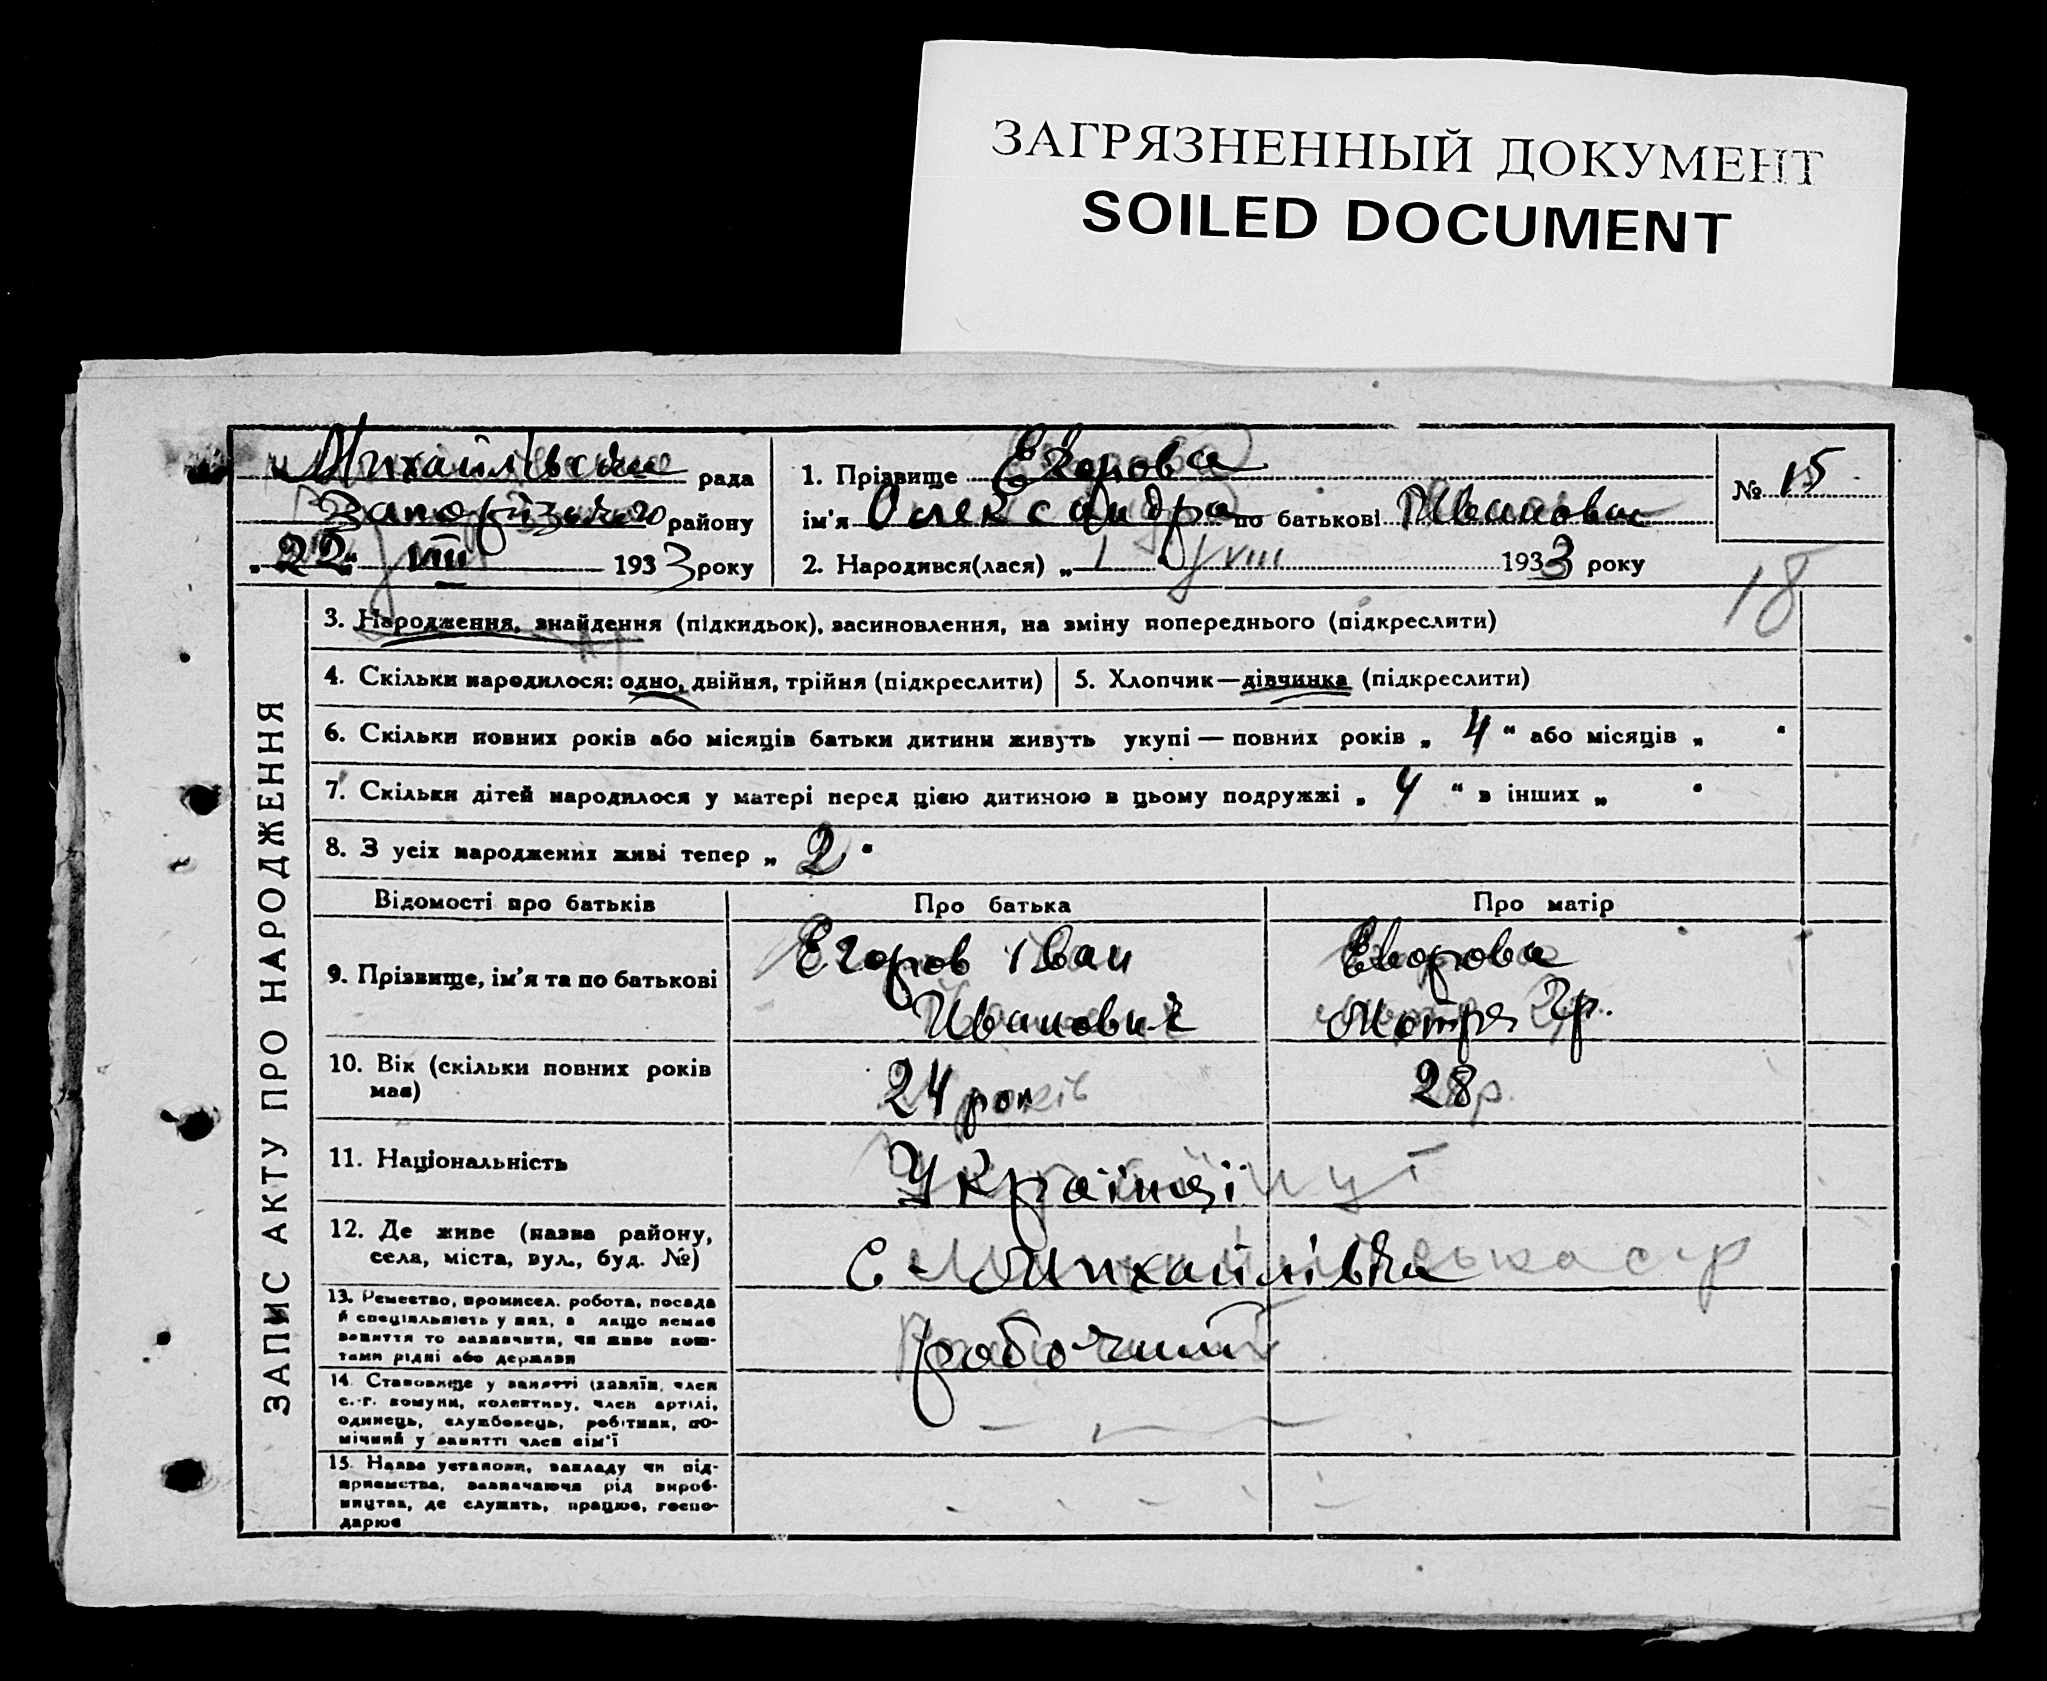 ЗАГРЯЗНЕННЫЙ ДОКУМЕНТ
SOILED DOCUMENT
Михайлівська рада
Запорізького району
„22“ VIII 1933 року
1. Прізвище Егорова
ім'я Олександра по батькові Ивановна
2. Народився(лася) „1 VIII 1933 року
№ 15
18
ЗАПИС АКТУ ПРО НАРОДЖЕННЯ
3. Народження, знайдення (підкидьок), засиновлення, на зміну попереднього (підкреслити)
4. Скільки народилося: одно, двійня, трійня (підкреслити)
5. Хлопчик—дівчинка (підкреслити)
6. Скільки повних років або місяців батьки дитини живуть укупі — повних років „ 4 “ або місяців „ “
7. Скільки дітей народилося у матері перед цією дитиною в цьому подружжі „ 4 “ в інших „ “
8. З усіх народжених живі тепер „ 2 “
Відомості про батьків
Про батька
Про матір
9. Прізвище, ім'я та по батькові
Егоров Іван
Иванович
Егорова
Мотря Гр.
10. Вік (скільки повних років
має)
24 рок
28 р.
11. Національність
Українці
12. Де живе (назва району,
села, міста, вул., буд. №)
С-Михайлівка
13. Ремество, промисел. робота, посада
й спеціяльність у них, а якщо немає
заняття то зазначити, чи живе кош-
тами рідні або держави
робочий
14. Становище у занятті (хазяїн, член
с.-г. комуни, колективу, член артілі,
одинець, службовець, робітник, по-
мічний у занятті член сім'ї
15. Назва установи, закладу чи під-
приємства, зазначаючи рід вироб-
ництва, де служить, працює, госпо-
дарює